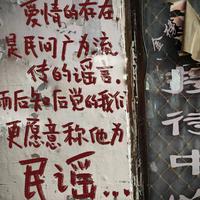 爱情的存在
是民间广为流
传的谣言.
而后知后觉的我们
更愿意称他为
民谣...
接待中